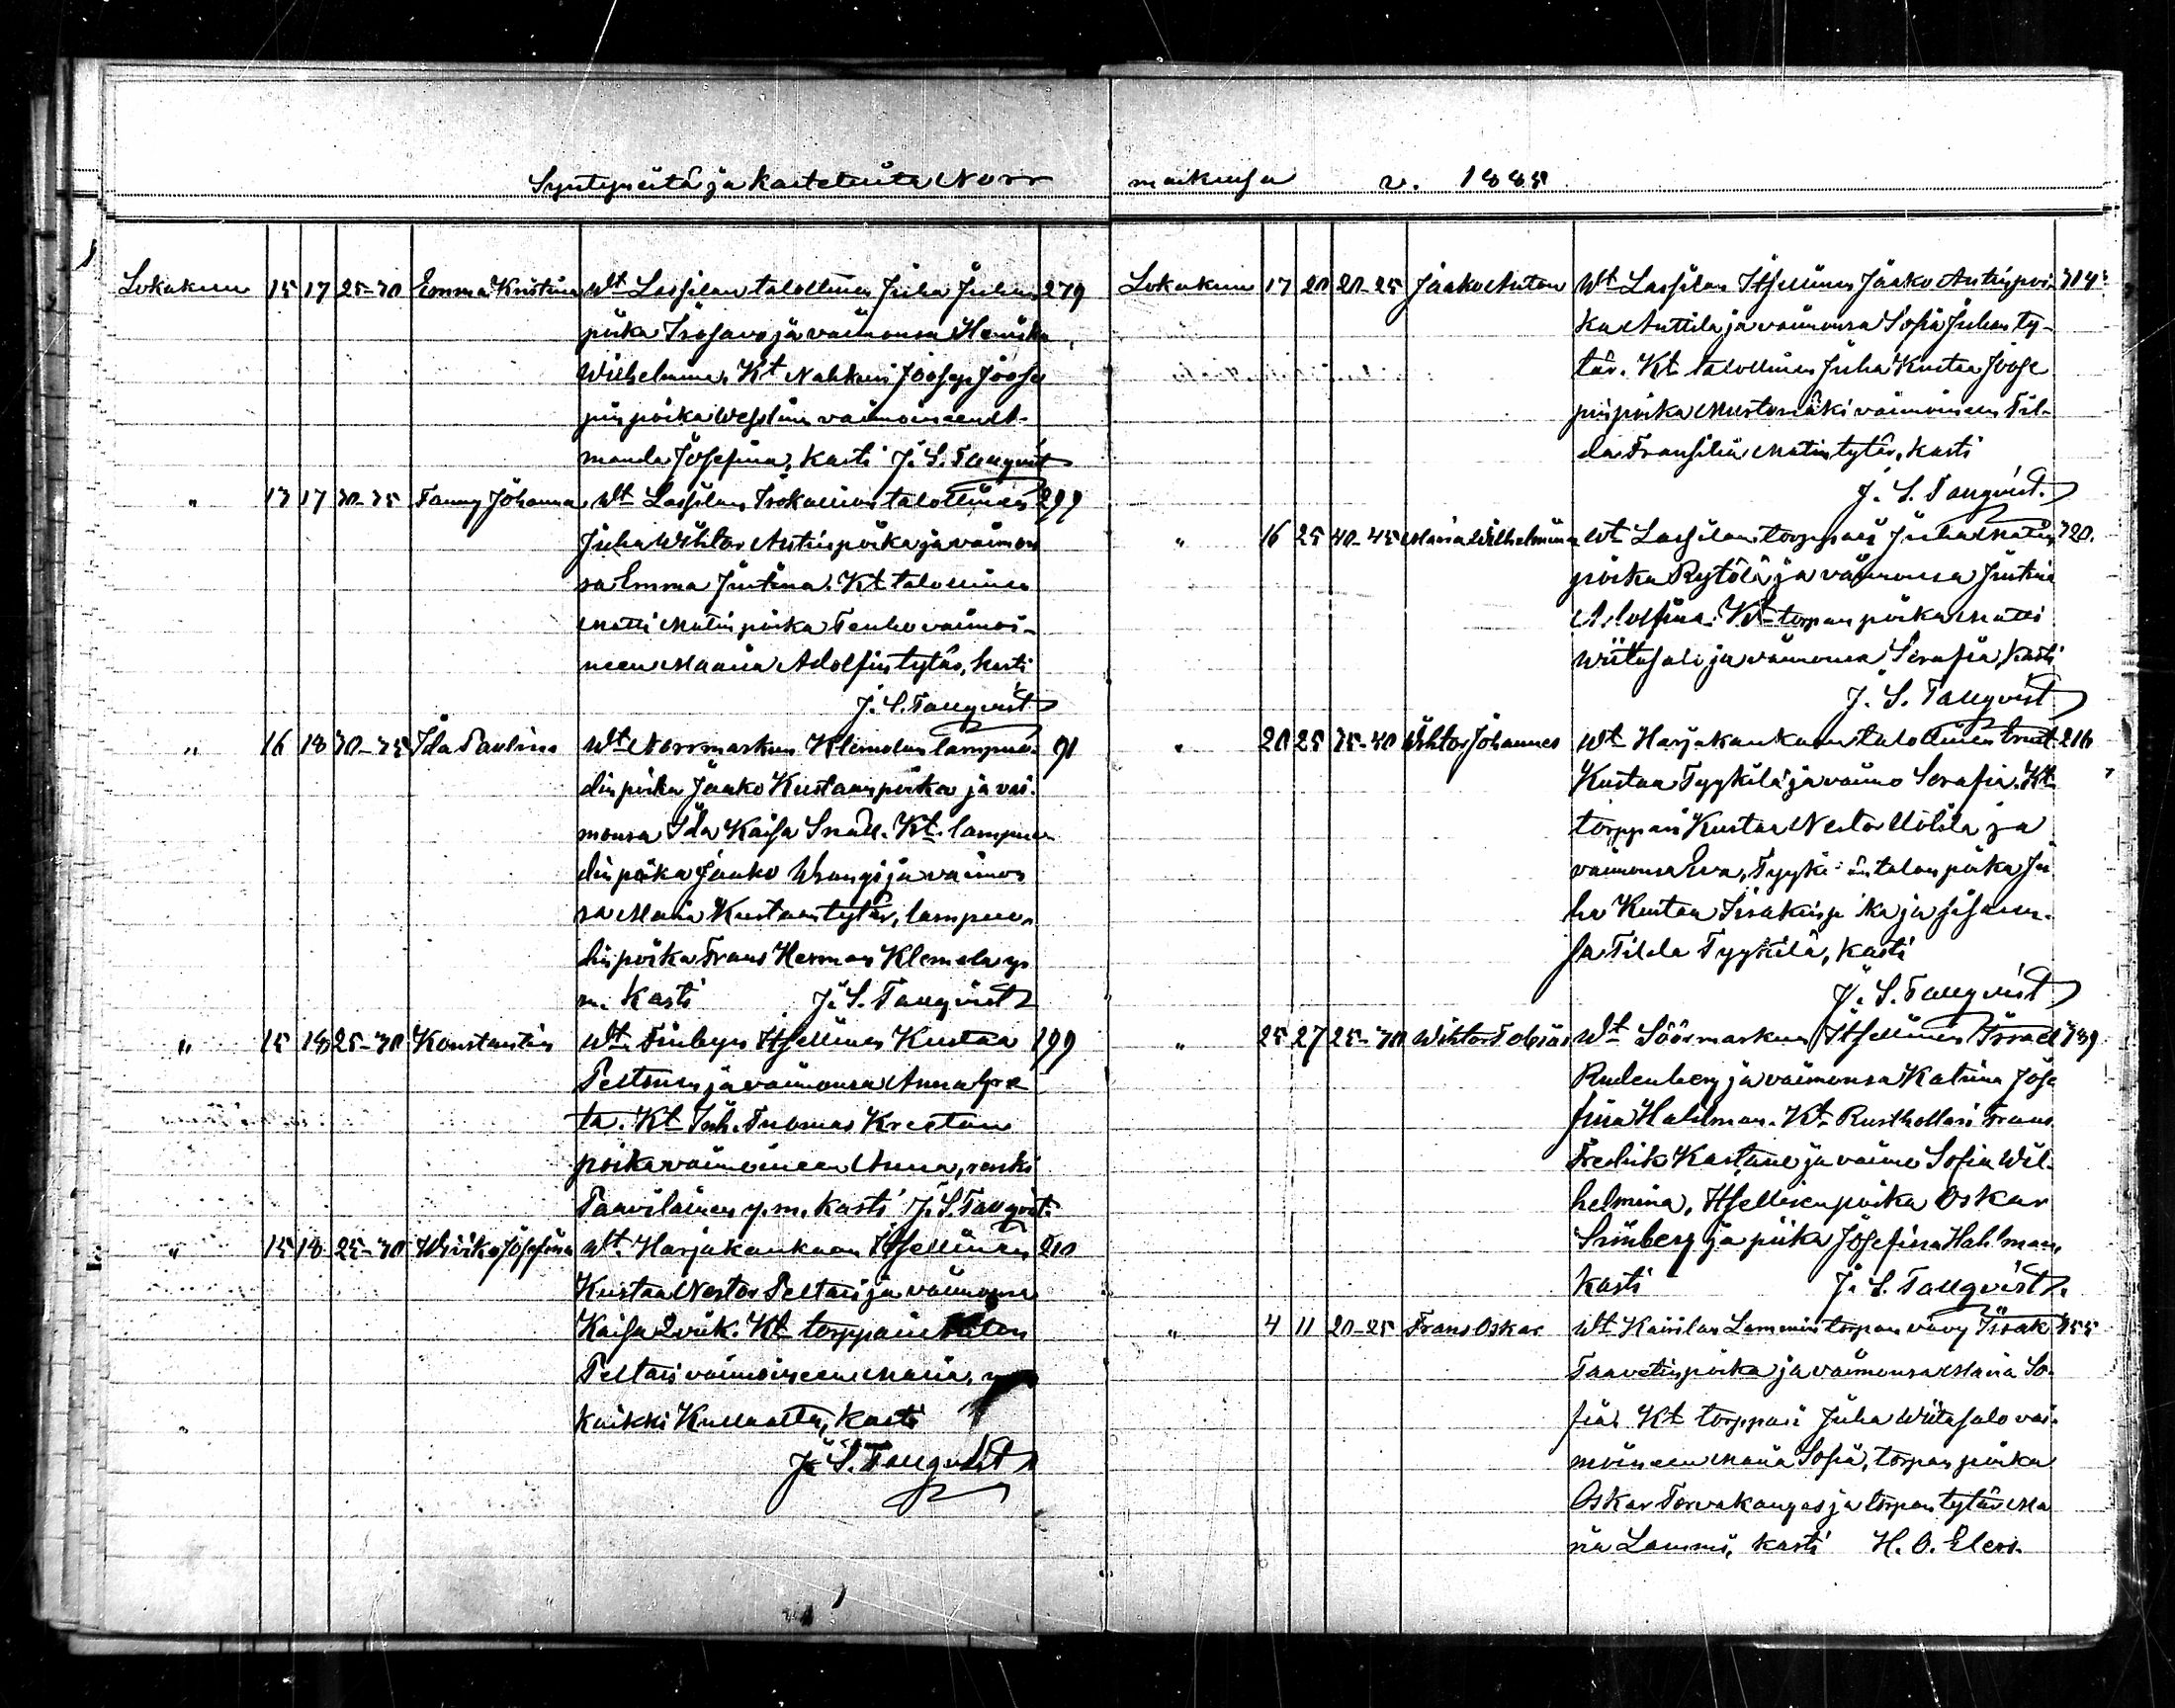 Syntyneitä ja kastetuita Norr
markussa v. 1885
Lokakuun 15 17 25-30 Emma Kristina Wt Lassilan talollinen Juha Juhan 279
poika Isosavo ja vaimonsa Henrika
Wilhelmina. Kt Nahkuri Joosep Joose
pin poika Weslin vaimoineen A-
manda Josefina, Kasti J. S. Tallqvist
" 13 17 30-35 Fanny Johanna Wt Lassilan Isokallion talollinen 299
Juha Wihtor Antin poika ja vaimon
sa Emma Justina. Kt talollinen
Matti Matin poika Tenho vaimoi-
neen Maria Adolfin tytär, kasti
J. S. Tallqvist
" 16 18 30-35 Ida Paulina Wt Norrmarkun Klemolan lampuo- 91
din poika Jaako Kustaan poika ja vai-
monsa Ida Kaisa Snäll. Kt. lampuo
din poika Jaako Wrangi ja vaimon
sa Maria Kustaan tytär, lampuo-
din poika Frans Herman Klemola y.
m. Kasti J. S. Tallqvist
" 15 18 25-30 Konstantin Wt Finbyn Itsellinen Kustaa 199
Peltonen ja vaimonsa Anna Gre
ta. Kt Itsh. Tuomas Krestian
poika vaimoineen Anna, renki
Paavilainen y.m. Kasti J. S. Tallqvist.
" 15 18 25-30 Wiivika Josefina Wt Harjakankaan Itsellinen 210
Kustaa Nestor Peltari ja vaimonsa
Kaisa Qvik. Kt torppari
Peltari vaimoineen Maria,
kaikki Kullaalta, Kasti
J. S. Tallqvist
Lokakuun 17 20 20-25 Jaako Anton Wt Lassilan Itsellinen Jaako Antin poi- 314
ka Anttila ja vaimonsa Sofia Juhan ty-
tär. Kt talollinen Juha Kustaa Joose
pin poika Mustamäki vaimoineen Til-
da Fransilia Matin tytär, Kasti
J. S. Tallqvist.
" 16 25 40-45 Maria Wilhelmina Wt Lassilan torppari Juha Matin 320.
poika Rytölä ja vaimonsa Justina
Adolfina. Kt torpan poika Matti
Wiitasalo ja vaimonsa Serafia, Kasti
J. S. Tallqvist
" 20 25 35-40 Wihtor Johannes Wt Harjakankaan talollinen Ernst 216
Kustaa Tyykilä ja vaimo Serafia. Kt
torppari Kustaa Nestor Uotila ja
vaimonsa Eva, Tyyki än talon poika Ju
ha Kustaa Iisakin p ika ja sisaren-
sa Tilda Tyykilä, Kasti
J. S. Tallqvist
" 25 27 25-30 Wihtor Tobias Wt Söörmarkun Itsellinen Israel 339
Rudenberg ja vaimonsa Katrina Jose
fina Hahlman. Kt Rusthollari Frans
Fredrik Kastane ja vaimo Sofia Wil-
helmina, Itsellisen poika Oskar
Grönberg ja piika Josefina Hahlman,
Kasti J. S. Tallqvist.
" 4 11 20-25 Frans Oskar Wt Kairilan Lammin torpan vävy Iisak 355
Taavetin poika ja vaimonsa Maria So-
fia. Kt torppari Juha Wiitasalo vai-
moineen Maria Sofia, torpan poika
Oskar Torvakangas ja torpan tytär Ma
ria Lammi, Kasti H. O. Elers.